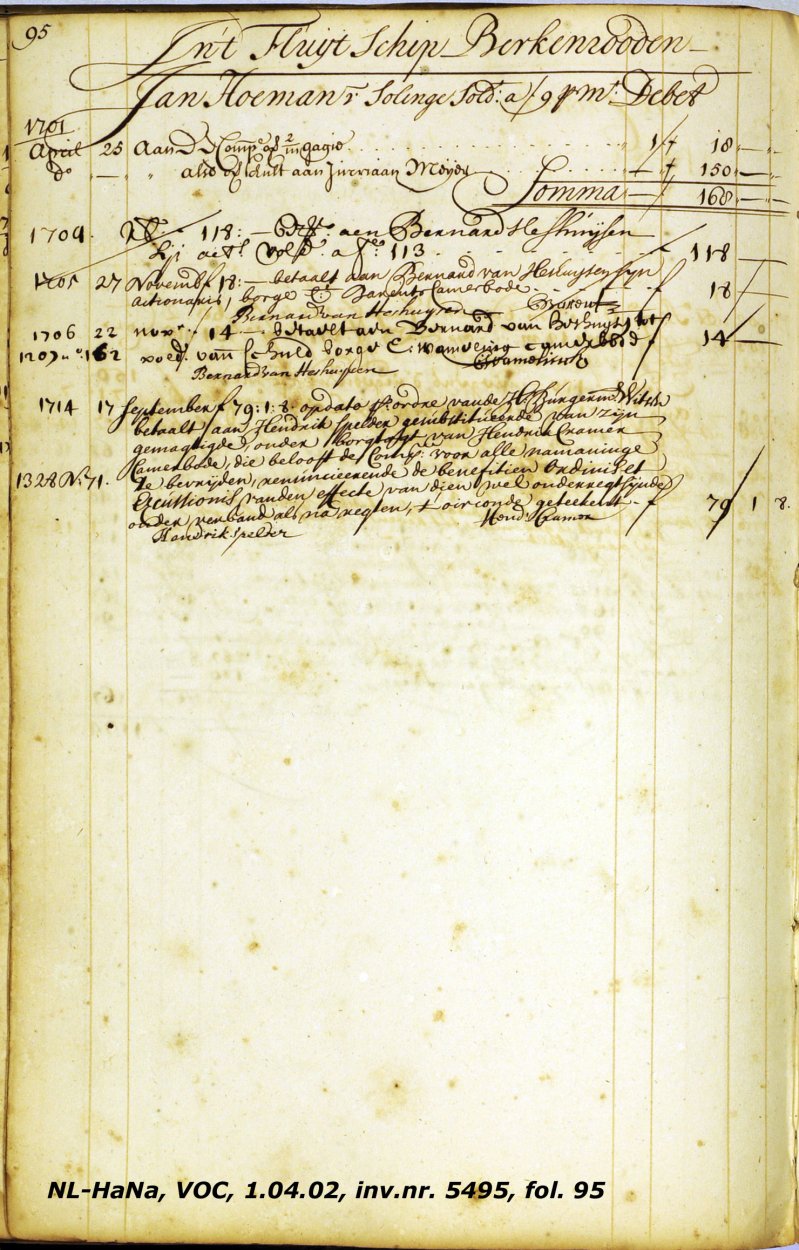 95
In't Fluyt Schip Berkenrooden
Jan Hoeman vr Solinge Sold: a f 9 p mt. Debet
1701
April 25 Aan D'E Comp: op 2/m gagie 1 f 18 — "
do — " also op schult aan Jurriaan Meyer — f 150 — "
Somma — f 168 — "
1704 118: — aen Bernard Heshuijsen
a fo. 113 f 118 —
1705 27 Novemb f 18: — betaalt aan Bernard van Heshuysen syn
actionaris, borge Barents Camerbode f 18 —
Bernard van Heshuysen Barents
1706 22 nov f 14 — betaelt aen Bernard van Heshuysen
voed: van schuld borge E: camerbode f 14 —
Bernard van Heshuysen
1714 17 September f 79: 1: 8: op dato pr. ordre van de Hr. Burgermr. Witsen
betaalt aan Hendrik Spelder gesubstitueerde van zijn
gemagtigde, onder borgtogt van Hendrik Cramer
Camerbode, die belooft de Comp: voor alle namaninge
1328 No. 71. te bevrijden, renuncieerende de benefitien Ordinis et
Excussionis, van den effecte van dien wel onderregt sijnde
onder verband als na regten, t oirconde geteekent f 79 1 8.
Hend: Cramer
Handrik Spelder
NL-HaNa, VOC, 1.04.02, inv.nr. 5495, fol. 95